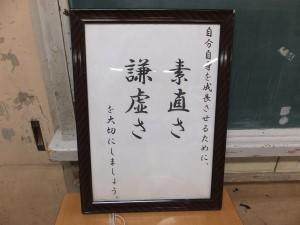 自分自身を成長させるために、
素直さ
謙虚さ
を大切にしましょう。